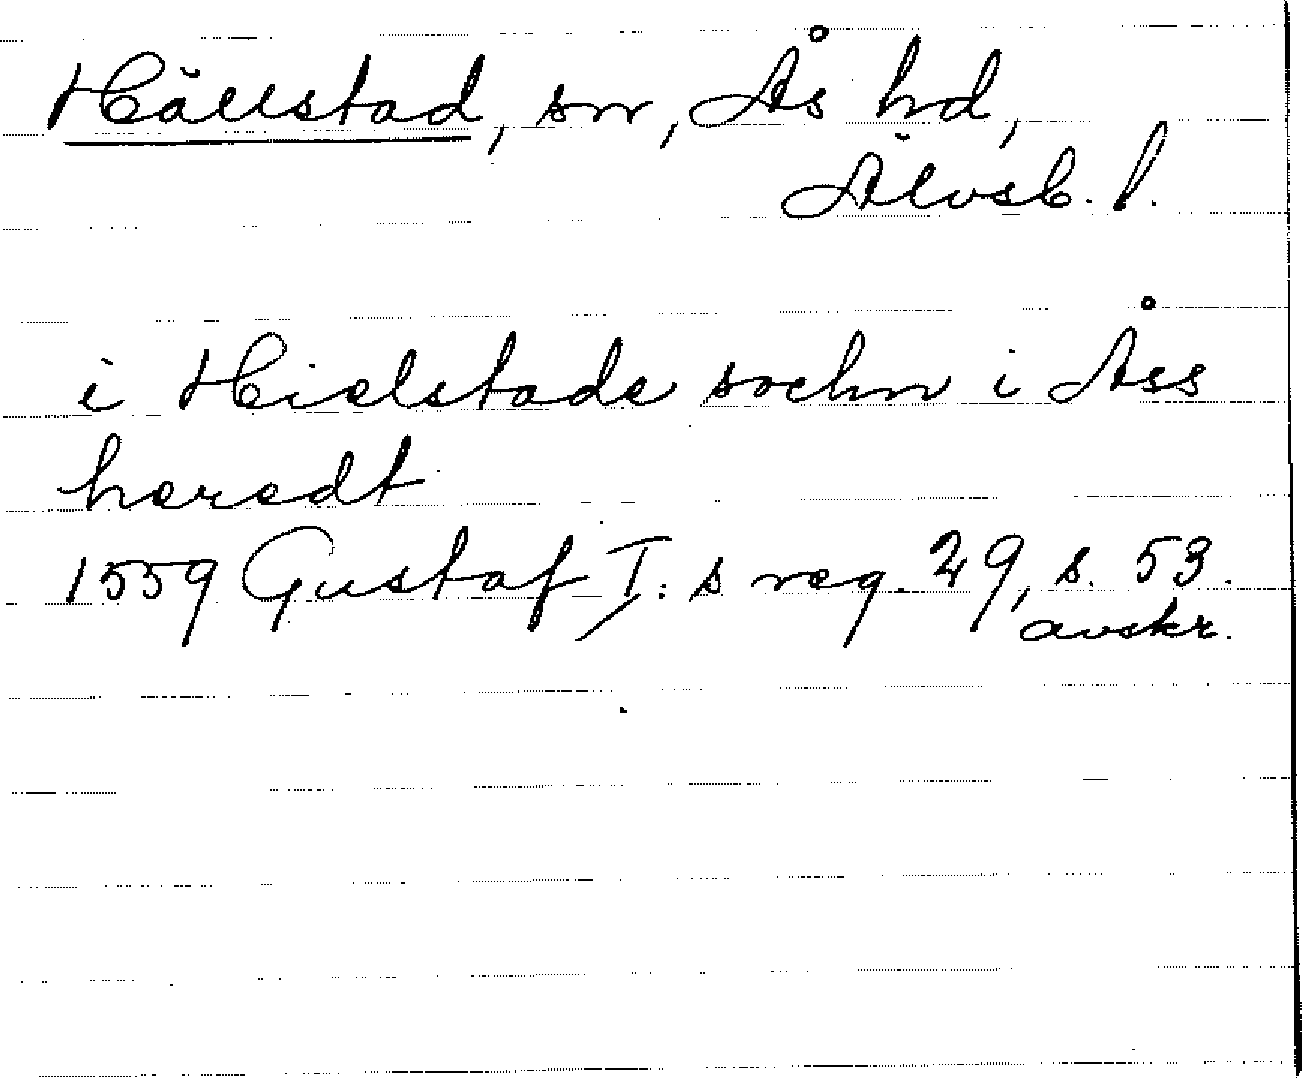 Hällstad, sn, Ås hd,
Älvsb. l.
i Hielstada sochn i Åss
heredt
1559 Gustaf I:s reg. 29, s. 53.
avskr.